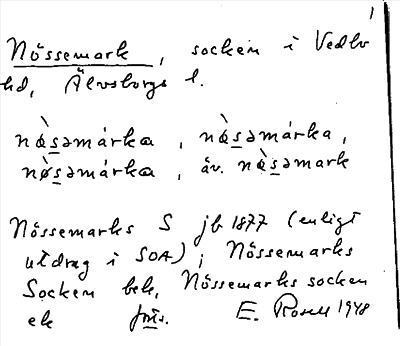 1
Nössemark, socken i Vedbo
hd, Älvsborgs l.
nø̀səmárka, nø̀səmárka,
nø̀səmárka, äv. nø̀səmark
Nössemarks S jb 1877 (enligt
utdrag i SOA); Nössemarks
Socken bek, Nössemarks socken
ek
E. Rosell 1948